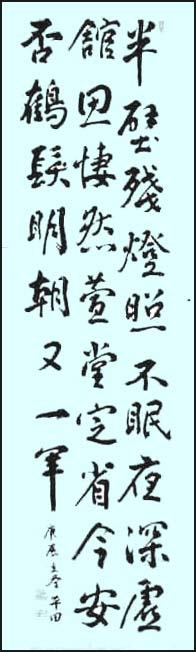 半壁殘燈照不眠夜深虛
館思悽然萱堂定省今安
否鶴髮明朝又一年
庚辰 平田